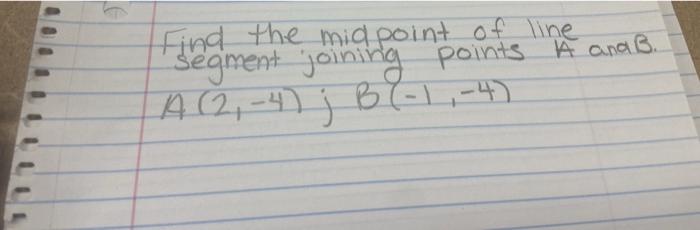 Find the midpoint of line
segment joining points A and B.
A (2, -4) ; B (-1, -4)